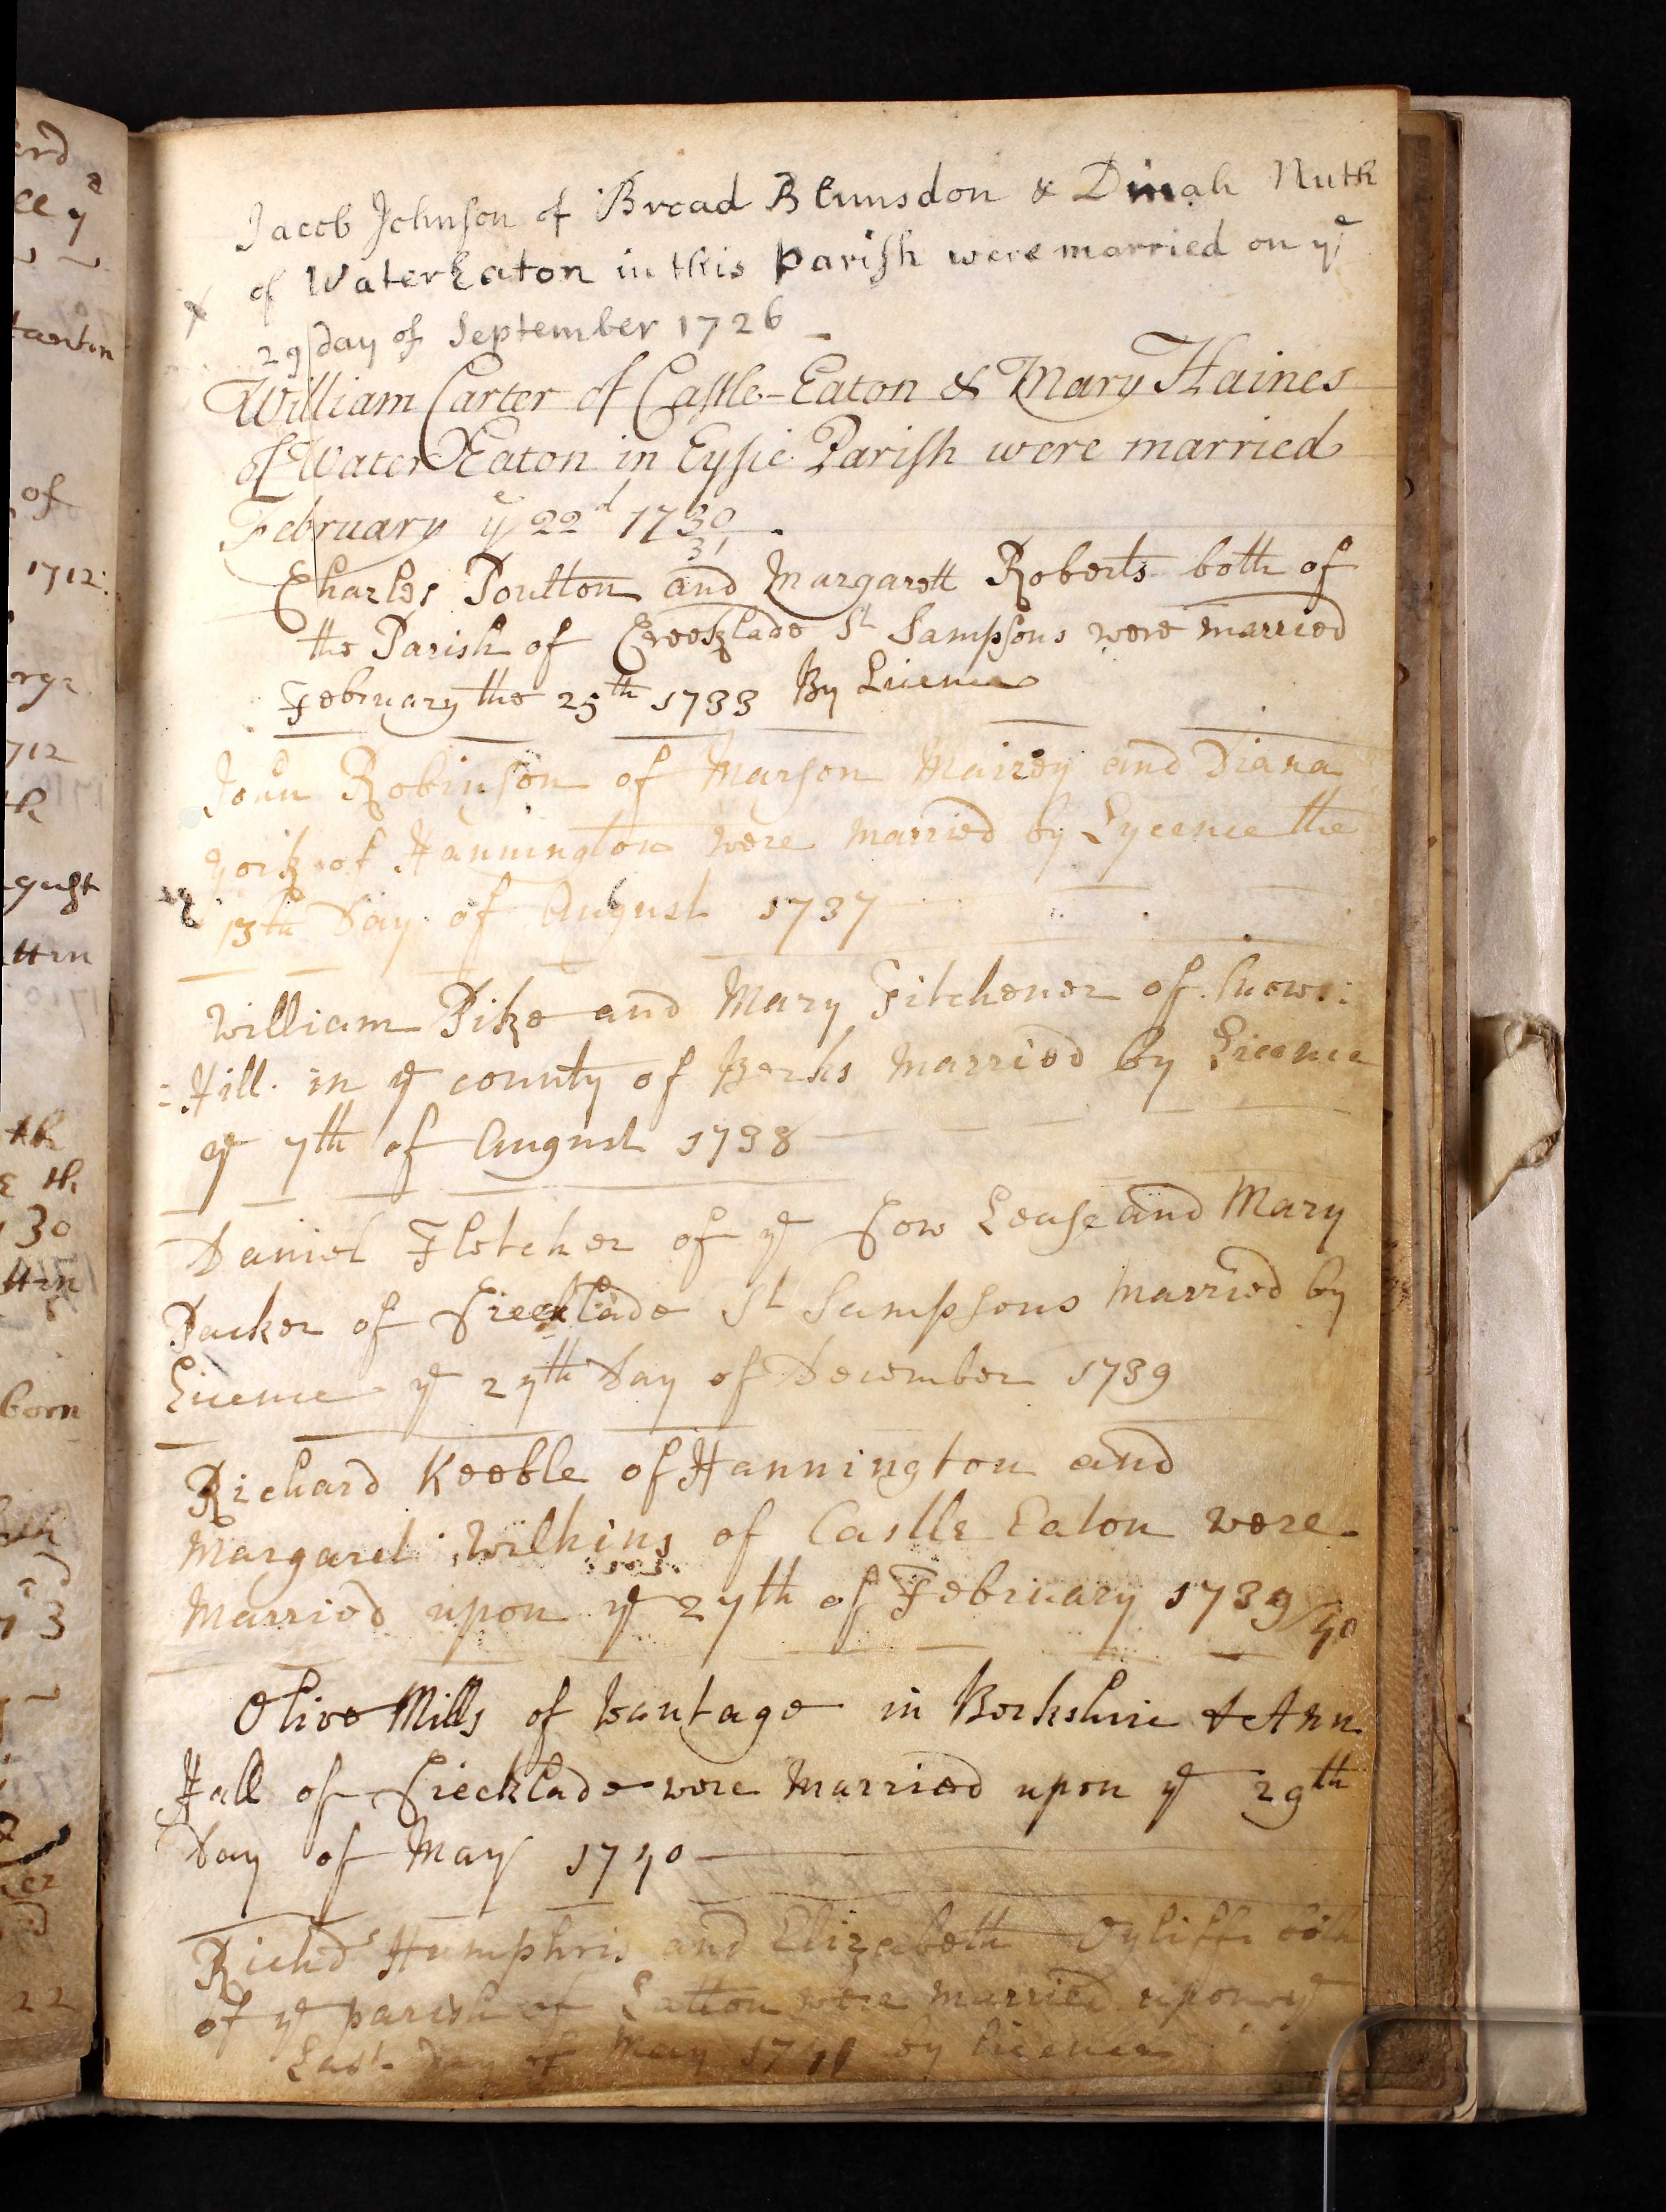 Jacob Johnson of Broad Blunsdon & Dinah Nuth
of Water Eaton in this Parish were married on ye
29 day of September 1726
William Carter of Castle-Eaton & Mary Haines
of Water Eaton in Eysie Parish were married
February ye 22d 1730
31
Charles Poulton and Margarett Roberts both of
the Parish of Creeklade St Sampsons were married
February the 25th 1733 By Licence
John Robinson of Marson Mairey and Diana
York of Hannington were married by Lycence the
13th Day of August 1737
William Pike and Mary Fitchener of
Hill in ye county of Berks Married by Licence
ye 7th of August 1738
Daniel Fletcher of ye Cow Lease and Mary
Packer of Creeklade St Sampsons Married by
Licence ye 27th Day of December 1739
Richard Keeble of Hannington and
Margaret Wilkins of Castle Eaton were
Married upon ye 27th of February 1739/40
Olive Mills of Wantage in Berkshire & Ann
Hall of Criecklade were Married upon ye 29th
Day of May 1740
Richd Humphris and Elizabeth Oyliffe both
of ye parish of Latton were married upon ye
Last Day of May 1741 by licence
erd
tanton
of
1712:
712
th
gust
ttrn
th
th
30
born
22